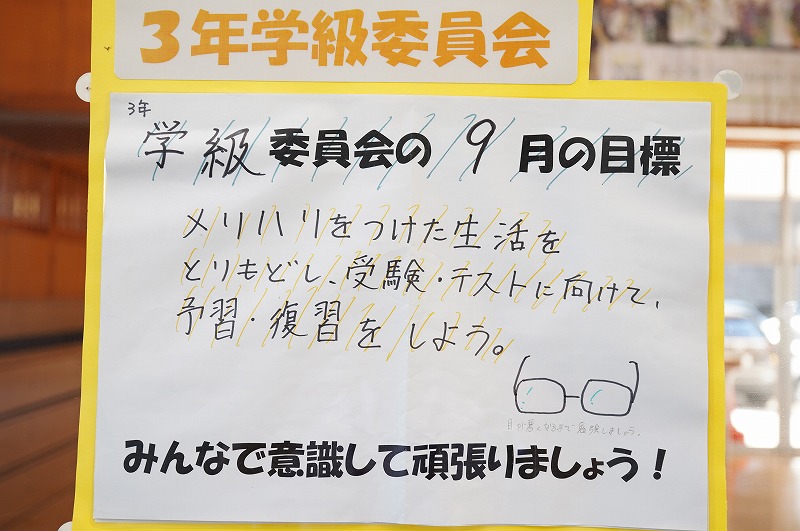 3年学級委員会
3年
学級委員会の9月の目標
メリハリをつけた生活を
とりもどし、受験・テストに向けて、
予習・復習をしよう。
目が悪くなるまで勉強しましょう。
みんなで意識して頑張りましょう!